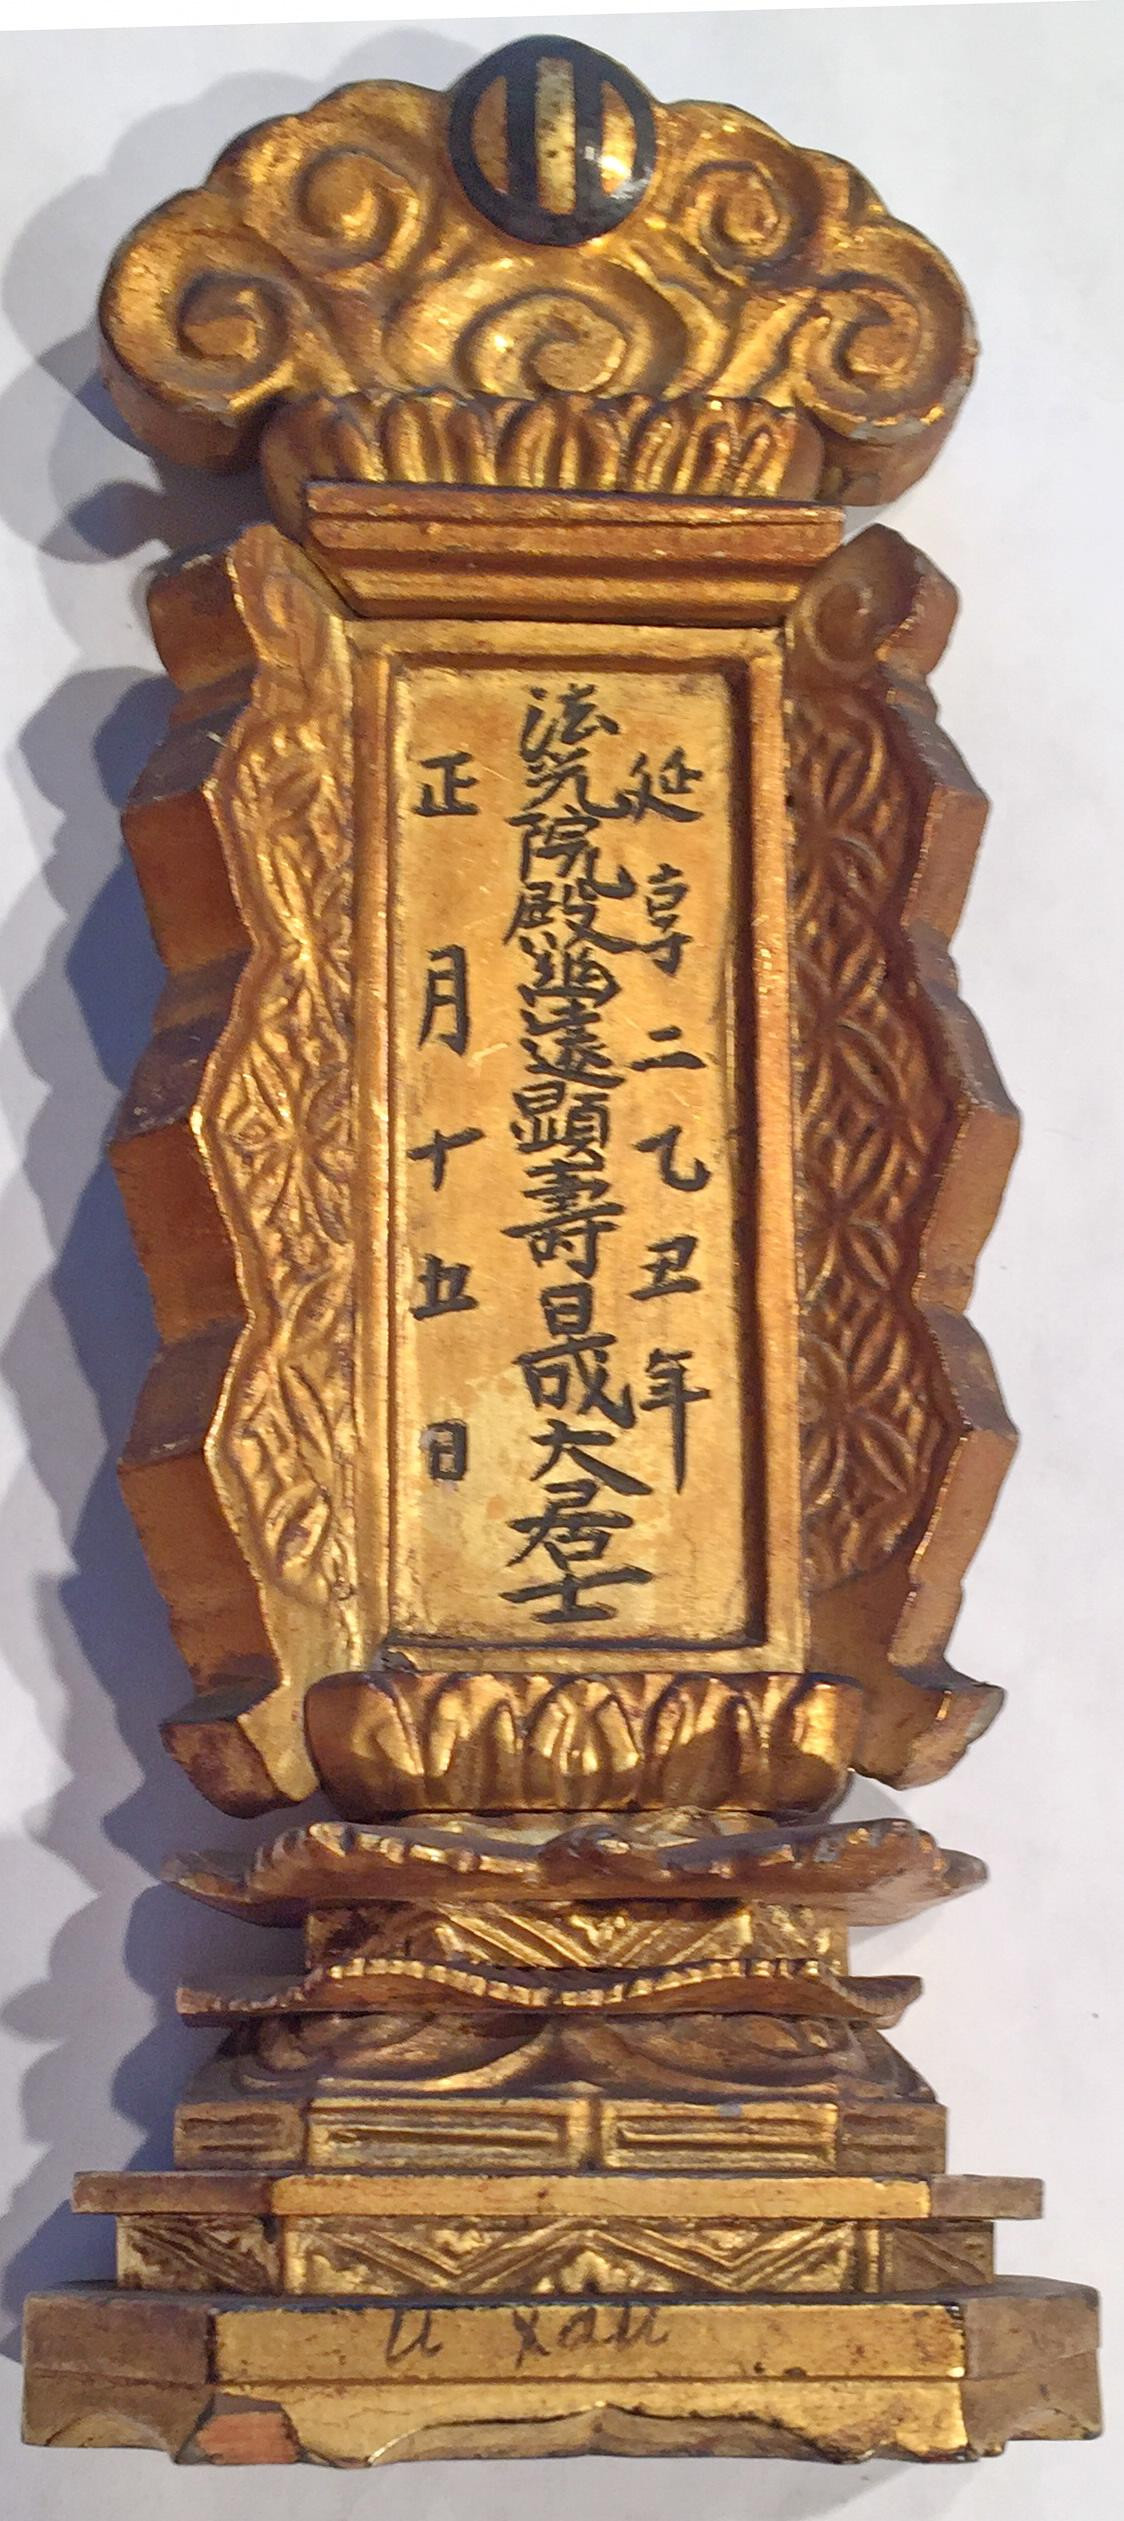 延享二乙丑年
法光院殿幽遠顕壽日成大居士
正月十五日